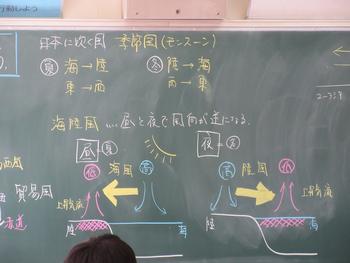 行動しよう
日本に吹く風 季節風(モンスーン)
夏 海→陸 冬 陸→海
東→西 西→東
海陸風 ‥‥昼と夜で風向が逆になる。
昼=夏 夜=冬
低 海風 高 高 陸風 低
上昇気流 上昇気流
陸 海 陸 海
西風
貿易風
赤道